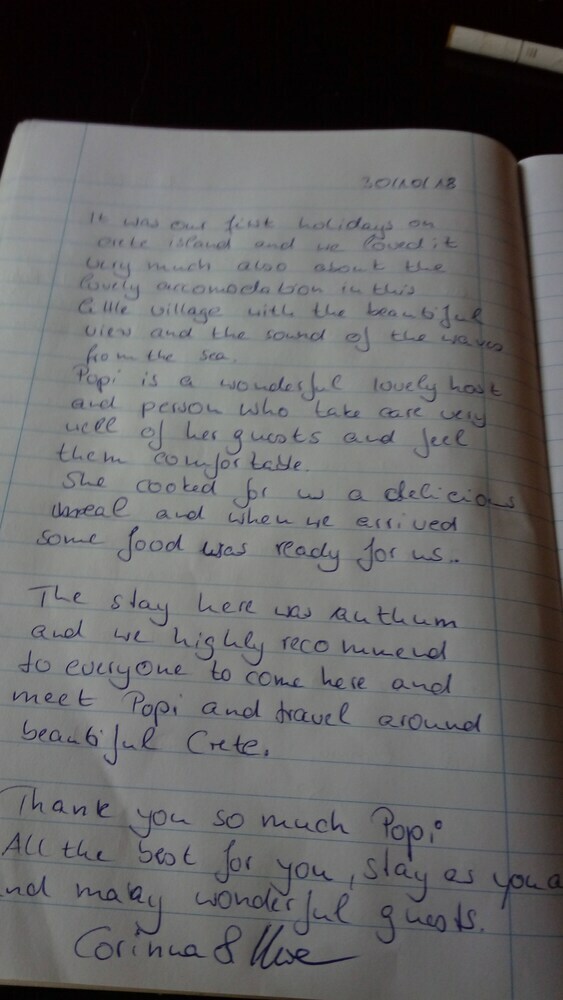 30/10/18
It was our first holidays on
crete island and we loved it
very much also about the
lovely accomodation in this
little village with the beautiful
view and the sound of the waves
from the sea.
Popi is a wonderful lovely host
and person who take care very
well of her guests and feel
them comfortable.
She cooked for us a delicious
meal and when we arrived
some food was ready for us..
The stay here was
and we highly recommend
to everyone to come here and
meet Popi and travel around
beautiful Crete.
Thank you so much Popi
All the best for you, stay as you a
nd many wonderful guests.
Corinna & Uwe